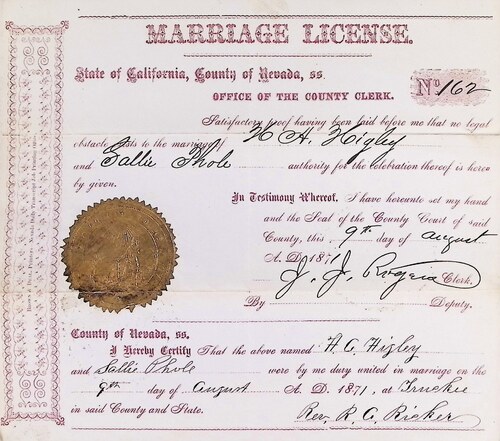 MARRIAGE LICENSE.
State of California, County of Nevada, ss.
OFFICE OF THE COUNTY CLERK.
No 162
Satisfactory proof having been laid before me that no legal
obstacle exists to the marriage of H A. Higley
and Sallie Phole authority for the celebration thereof is hereby
by given.
In Testimony Whereof, I have hereunto set my hand
and the Seal of the County Court of said
County, this 9th day of August
A. D. 1871
J. J. Rogers Clerk.
By Deputy.
County of Nevada, ss.
I Hereby Certify That the above named H. A. Higley
and Sallie Phole were by me duly united in marriage on the
9th day of August A. D. 1871, at Truckee
in said County and State. Rev. R. A. Ricker